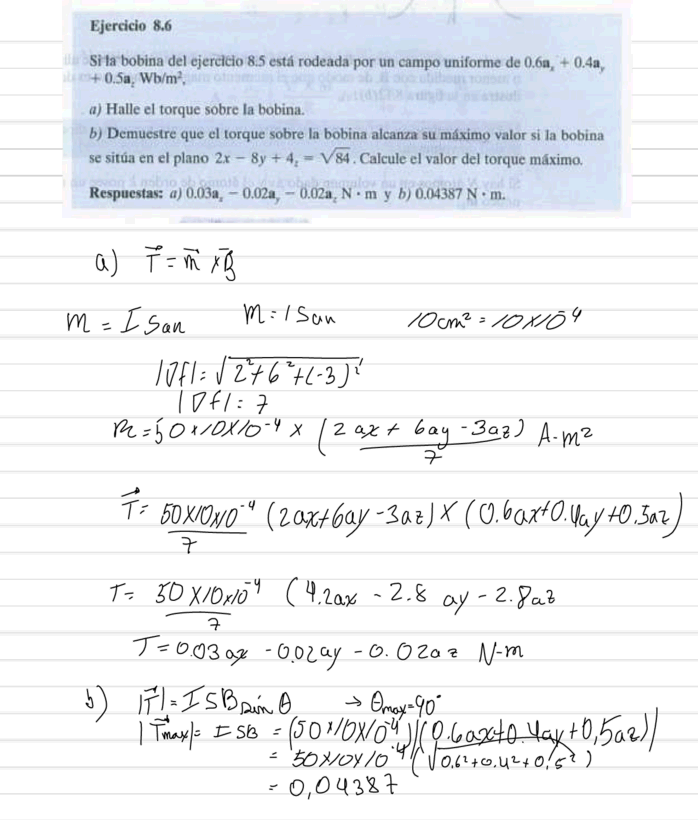 Ejercicio 8.6
Si la bobina del ejercicio 8.5 está rodeada por un campo uniforme de 0.6aₓ + 0.4aᵧ
+ 0.5a_z Wb/m²,
a) Halle el torque sobre la bobina.
b) Demuestre que el torque sobre la bobina alcanza su máximo valor si la bobina
se sitúa en el plano 2x − 8y + 4_z = √84. Calcule el valor del torque máximo.
Respuestas: a) 0.03aₓ − 0.02aᵧ − 0.02a_z N · m y b) 0.04387 N · m.
a) T⃗ = m⃗ × B⃗
m = I San m = I San 10cm² = 10x10⁻⁴
|∇f| = √(2² + 6² + (-3)²)
|∇f| = 7
m = 50x10x10⁻⁴ x (2ax + 6ay - 3az)/7 A-m²
T⃗ = 50x10x10⁻⁴/7 (2ax+6ay-3az) x (0.6ax+0.4ay+0.5az)
T = 50x10x10⁻⁴/7 (4.2ax - 2.8 ay - 2.8az
T = 0.03ax - 0.02ay - 0.02az N-m
b) |T⃗| = I S B sin θ → θmax = 90°
|T⃗max| = I SB = (50x10x10⁻⁴)|(0.6ax+0.4ay+0,5az)|
= 50x10x10⁻⁴ (√0.6²+0.4²+0,5²)
= 0,04387